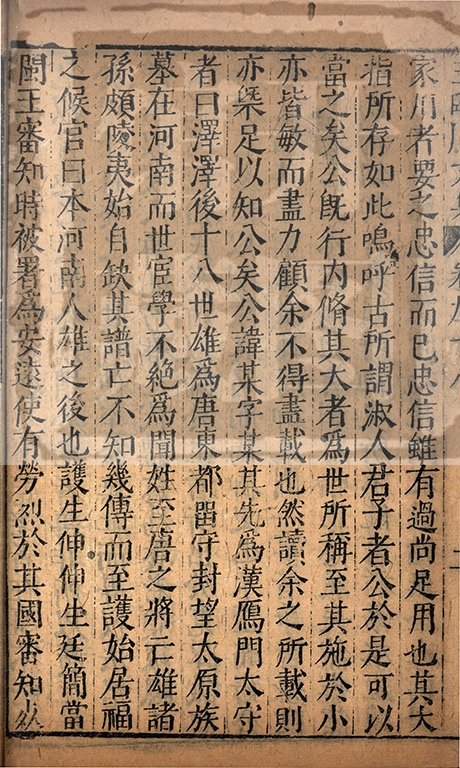 家用者要之忠信而已忠信雖有過尚足用也其大
指所存如此嗚呼古所謂淑人君子者公於是可以
當之矣公既行內脩其大者爲世所稱至其施於小
亦皆敏而盡力顧余不得盡載也然讀余之所載則
亦槩足以知公矣公諱某字某其先爲漢鴈門太守
者曰澤澤後十八世雄爲唐東都留守封望太原族
墓在河南而世宦學不絕爲聞姓至唐之將亡雄諸
孫頗陵夷始自缺其譜亡不知幾傳而至護始居福
之候官曰本河南人雄之後也護生伸伸生廷簡當
閩王審知時被署爲安遠使有勞烈於其國審知